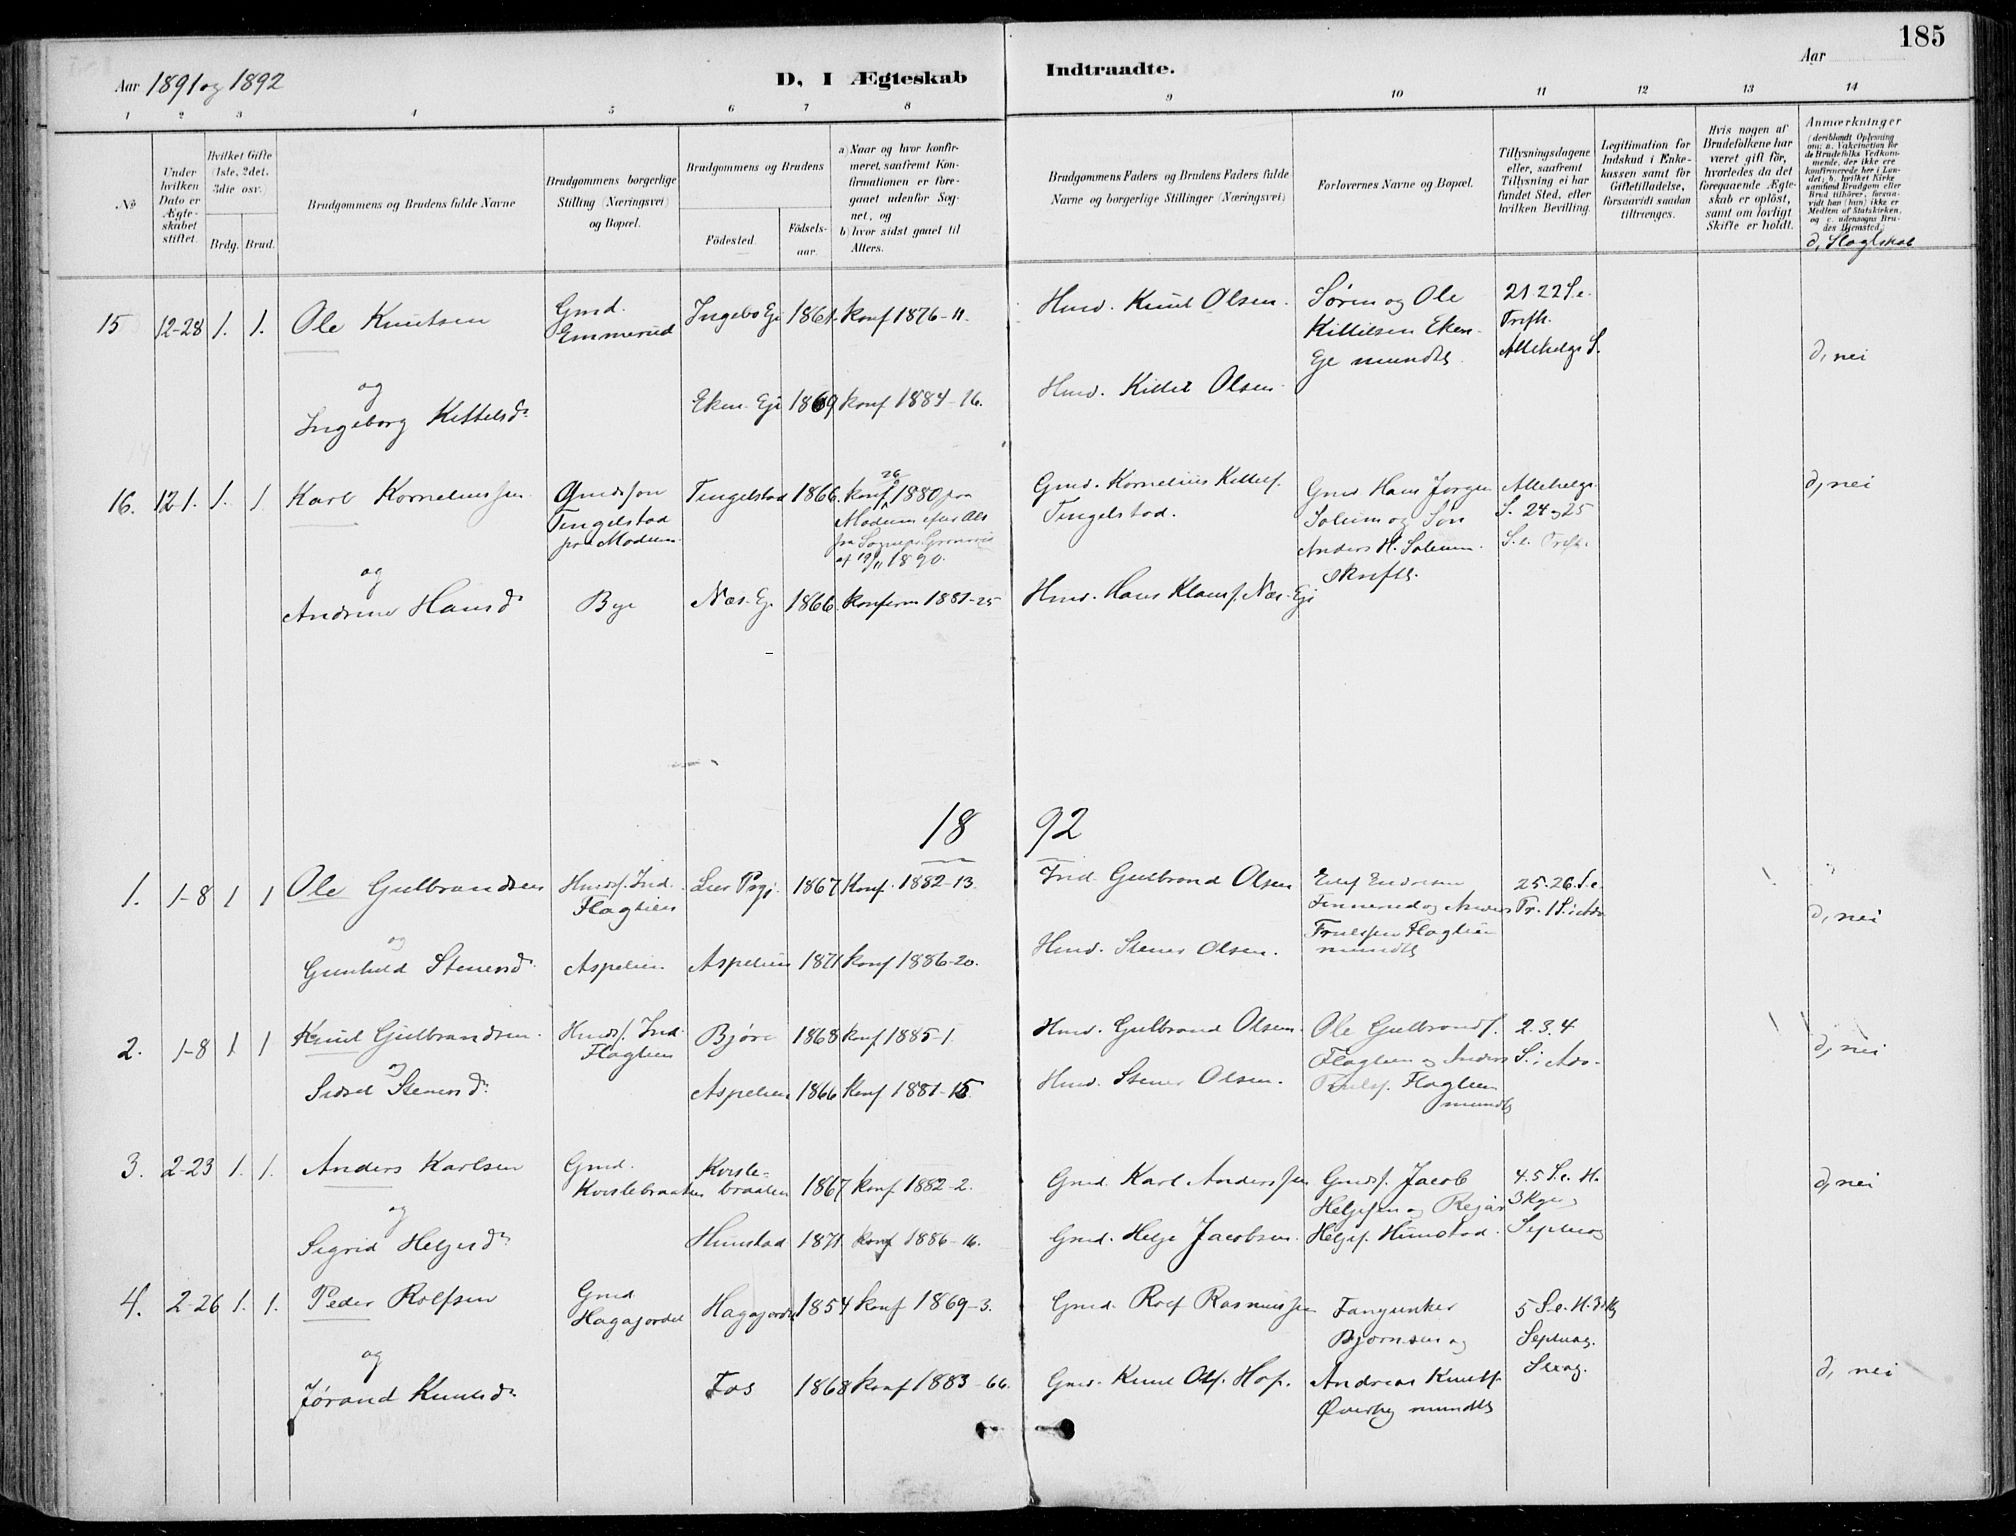 185
Aar 1891 og 1892
D, I Ægteskab Indtraadte.
Aar
1 2 3 4 5 6 7 8 9 10 11 12 13 14
No
Under hvilken Dato er Ægteskabet stiftet.
Hvilket Gifte (1ste, 2det, 3die osv.
Brdg. Brud.
Brudgommens og Brudens fulde Navne
Brudgommens borgerlige Stilling (Næringsvei) og Bopæl.
Brudgommens og Brudens
Fødested. Fødselsaar.
a) Naar og hvor konfirmeret, saafremt Konfirmationen er foregaaet udenfor Sognet, og
b) hvor sidst gaaet til Alters.
Brudgommens Faders og Brudens Faders fulde Navne og borgerlige Stillinger (Næringsvei)
Forlovernes Navne og Bopæl.
Tillysningsdagene eller, saafremt Tillysning ei har fundet Sted, efter hvilken Bevilling.
Legitimation for Indskud i Enkekassen samt for Giftetilladelse, forsaavidt saadan tiltrænges.
Hvis nogen af Brudefolkene har været gift før, hvorledes da det foregaaende Ægteskab er opløst, samt om lovligt Skifte er holdt.
Anmærkninger (deriblandt Oplysning om: a. Vakcination for de Brudefolks Vedkommende, der ikke ere konfirmerede her i Landet; b. hvilket Kirkesamfund Brudgom eller Brud tilhører, forsaavidt han (hun) ikke er Medlem af Statskirken, og c. udensogns Brudes Hjemsted.)
d, Slagtskab
15 12-28 1. 1. Ole Knutsen Gmd. Emmerud Ingebo Eje 1861. Konf 1876-11. Hmd. Knut Olsen. Søren og Ole
Kittilsen Eken
Eje mundtl. 21 22 S.e.
Trefh.
Allehelgs S. d, nei
og
Ingeborg Kittelsd. Eken Eje 1869 Konf 1884-16. Hmd. Kittel Olsen
16. 12-1. 1. 1 Karl Korneliussen Gmdsøn
Tingelstad
paa Modum Tingelstad 1866. Konf. 26/ 1880 paa
Modum efter At
fra Sognepr.
af 19/11 1890. Gmd. Kornelius Kittelf.
Tingelstad. Gmd Hans Jørgen
Solum og Søn
Anders H. Solum.
skriftl. Allehelgs
S. 24 og 25
S.e. Trefh. d, nei
og
Andrine Hansd. Bye Næs-Eje 1866. Konfirm 1881-25 Hmd. Hans Klausf. Næs-Eje
1892
1. 1-8 1 1 Ole Gulbrandsen Hmdsf. Ind.
Flagtien Lier Prgj. 1867 Konf. 1882-13. Ind Gulbrand Olsen
og Anders
Flagtien
mundtl 25-26 S.e.
Tr. 1 S. i Adv d, nei
og
Gunhild Stenersd. Aspelien Aspelien 1871 Konf 1886-20. Hmd. Stener Olsen.
2. 1-8 1 1 Knut Gulbrandsen. Hmdsf. Ind.
Flagtien Bjøre 1868 Konf 1885-1. Hmd. Gulbrand Olsen Ole Gulbrandsf.
Flagtien og Anders
Flagtien
mundtl 2. 3. 4
S. i Adv. d, nei
og
Sidsel Stenersd. Aspelien 1866 Konf 1881-15 Hmd. Stener Olsen.
3. 2-23 1. 1. Anders Karlsen Gmd.
Kvislebraaten Kvisle-
braaten 1867 Konf 1882-2. Gmd. Karl Anderssen Gmdsf. Jacob
Helgesen og Rejar
Helgesf. Hunstad. 4. 5 S.e. H.
3 Kgr
Septuag d, nei
og
Sigrid Helgesd. Hunstad 1871 Konf 1886-16. Gmd. Helge Jacobsen.
4. 2-26 1. 1. Peder Rolfsen Gmd
Hagajordet Hagajordet 1854 Konf 1869-3. Gmd. Rolf Rasmussen Bjørnsen og
Andreas Knutf.
Øverby mundtl 5 S.e. H. 3 K
Septuag.
Sexag. d, nei
og
Jørand Knutsd. Fos 1868 Konf 1883-66. Gmd. Knut Olf. Hof.